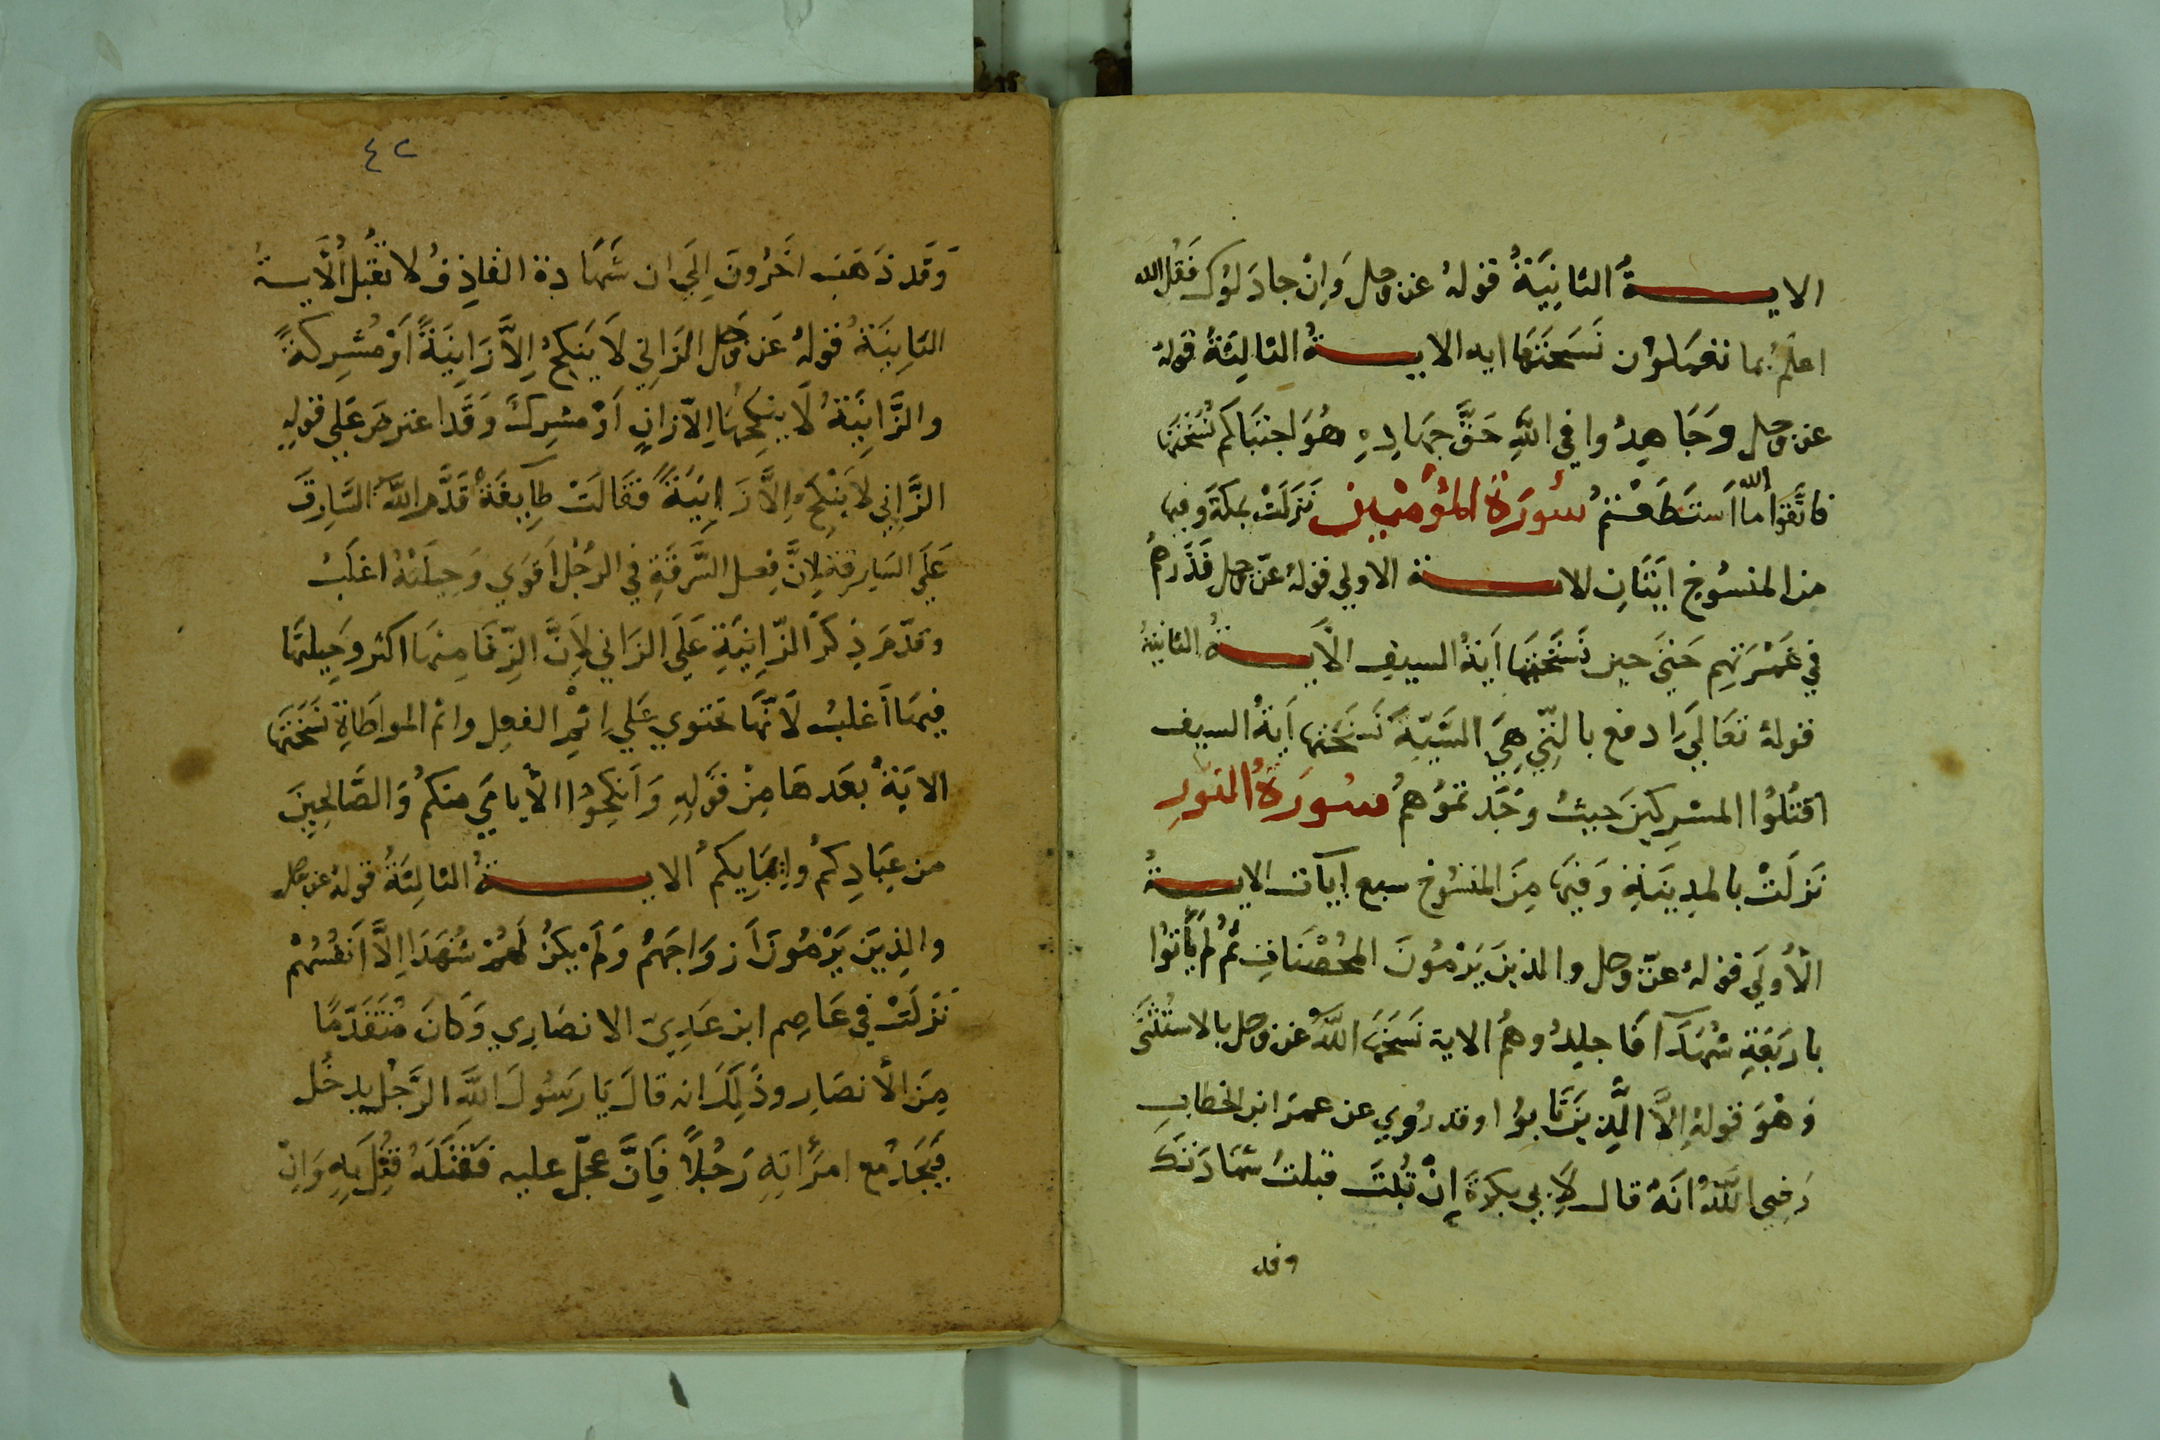 الايـــة الثانِيَةُ قولهُ عز وجل وَاِنْ جادَلوُك فَقُلِ الله
اعلَمُ بما تعملوُن نَسَخَتهَا ايه الايـــةُ الثالِثَةُ قولهُ
عز وجل وَجَاهِدُوا في اللهِ حَقَّ جِهَادِهِ هُوَ اجتَبَاكم نُسَخَتهَا
فاتَّقوُا الله ما اَستَطَعْتمُ سُورَة المؤمنين نَزَلَتْ بمكةَ وفيها
مِن المنسُوخِ ايَتَانِ الايـــة الاولي قولهُ عزّ وجل فَذَرهُمْ
في غَمْرَتهِم حَتيَ حين نَسَخَتهَا اَيَةُ السيفِ الاَيـــةُ الثانيَةُ
قولهُ تعَاليَ ادفع بالتِّي هِيَ السَّيّةَ نَسَختها اَيَةُ السيف
اقتُلُوا المشرِكينَ حَيثُ وَجَدتموُهمُ سُورَةُ النوُرِ
نَزلَتْ بالمدِينَةِ وَفيهَا مِنَ المنسُوُخ سبع اَيات الايـــةُ
الاُولَي قولهُ عزّ وجل والذينَ يَرْمُونَ المُحْصَنَاتِ ثُمَّ لَم يَأتوُا
باربَعَةِ شُهَدَآ فَاجلِدُوهُم الاية نَسَخَهَا اللَّهُ عز وجل بالاستثنَى
وَهْوَ قولهُ اِلاَّ الَّذِينَ تَابوُا وقد رُوي عن عمرَ ابن الخطابِ
رَضِي اللَّهُ انهُ قال لاِبي بكرةَ اِنْ تُبتَ قبلتُ شهَادَتكَ
وقد
٤٢
وَقَد ذَهَبَ اخَرُونَ اِلَي ان شَهَادة القاذِفُ لا تقُبل الاَيـةُ
الثانِيَةُ قولهُ عَز وَجَل الزَاني لاَ يَنكِحُ اِلاَّ زَانِيَةً اَوْ مُشرِكةً
والزَّانِيَةُ لَا ينكِحُهَا اِلاَّ زانٍ اَوْ مشرِكٌ وَقَد اعترضَ عَلي قولِهِ
الزَّانِي لا يَنكِحُ اِلاَّ زَانِيَةً فقَالَتْ طايِفَةٌ قدَّم اللَّهُ السَّارِقَ
عَلَى السَارِقةِ لِاَنَّ فِعل السَّرقَةِ في الرَجُل اَقوَي وَحِيلَتُهُ اغلَبُ
وقدّمَ ذِكرَ الزّانِيَةِ عَلَى الزَاني لِاَنَّ الزِّنَا مِنهَا اكثر وحِيلتهَا
فيهَا اَغلبُ لاَنَّهَا تحتوي عَلي اثمِ الفعِل واثم المواطَاةِ نَسَخَتهَا
الايَةُ بعَدهَا مِنْ قَولِهِ وَاَنكِحُوا الاَيَامَي مِنكمُ وَالصَّالحِينَ
من عِبَادِكمُ واِمَايِكمُ الايـــةُ الثالِثَةُ قولهُ عز وجل
والذِينَ يَرْمُونَ اَزوَاجَهمُ وَلَمْ يكنُ لَهُمْ شُهَدَا اِلاَّ اَنفُسُهُمْ
نَزَلَتْ في عَاصِم ابن عَدِيّ الانصَارِي وَكانَ مُتقَدّمًا
مِنَ الاَنصَارِ وذَلِكَ انه قالَ يَا رَسُولَ اللَّهِ الرَّجُل يدخُل
فيَجدُ مع امرَأتِهِ رَجُلاً فَاِنَّ عجّل عليه فَقتَلَهُ قُتِلَ بِهِ وَاِنْ